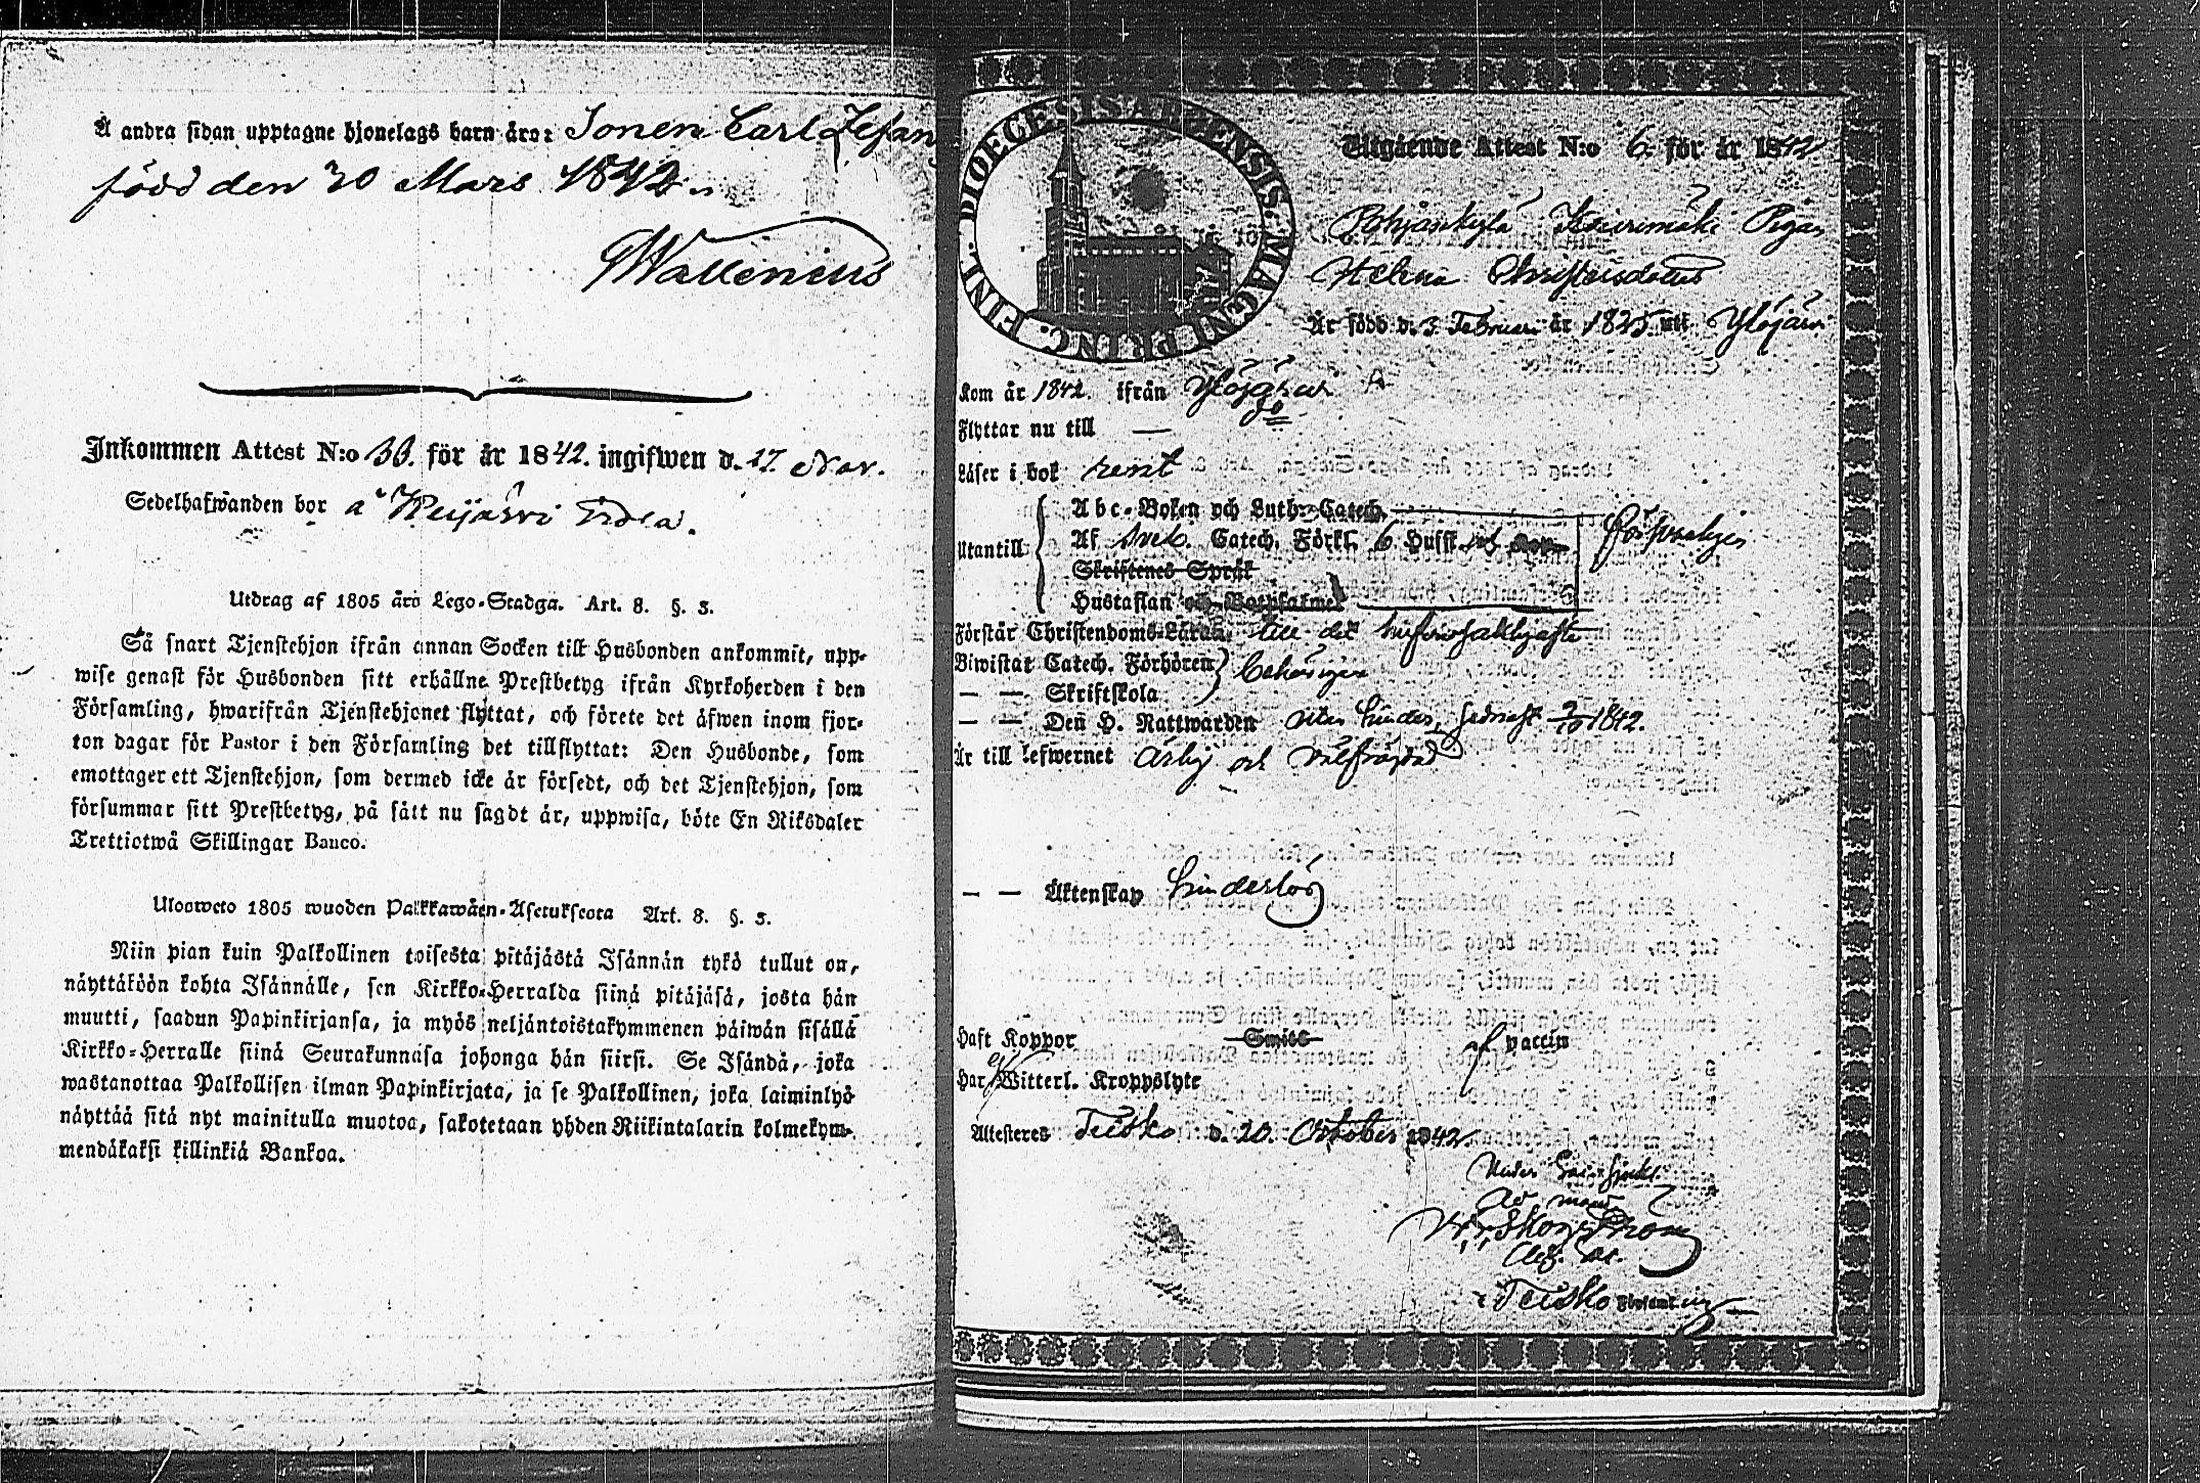 Å andra sidan upptagne hjonelags barn äro: Sonen Carl Stefan
född den 30 Mars 1842.
Wallenius
Inkommen Attest N:o 33. för år 1842. ingifwen d. 17. Nov.
Sedelhafwanden bor å
Utdrag af 1805 års Lego-Stadga. Art. 8. §. 3.
Så snart Tjenstehjon ifrån annan Socken till Husbonden ankommit, upp-
wise genast för Husbonden sitt erhållne Prestbetyg ifrån Kyrkoherden i den
Församling, hwarifrån Tjenstehjonet flyttat, och förete det äfwen inom fjor-
ton dagar för Pastor i den Församling det tillflyttat: Den Husbonde, som
emottager ett Tjenstehjon, som dermed icke är försedt, och det Tjenstehjon, som
försummar sitt Prestbetyg, på sätt nu sagdt är, uppwisa, böte En Riksdaler
Trettiotwå Skillingar Banco.
Ulosweto 1805 wuoden Palkkawäen-Asetuksesta Art. 8. §. 3.
Niin pian kuin Palkollinen toisesta pitäjästä Isännän tykö tullut on,
näyttäköön kohta Isännälle, sen Kirkko-Herralda siinä pitäjäsä, josta hän
muutti, saadun Papinkirjansa, ja myös neljäntoistakymmenen päiwän sisällä
Kirkko-Herralle siinä Seurakunnasa johonga hän siirsi. Se Isändä, joka
wastanottaa Palkollisen ilman Papinkirjata, ja se Palkollinen, joka laiminlyö
näyttää sitä nyt mainitulla muotoa, sakotetaan yhden Riikintalarin kolmekym-
mendäkaksi killinkiä Bankoa.
DIOECESIS ABOENSIS. MAGNI PRINC. FINL.
Utgående Attest N:o 6. för år 1842
Pohjankylä Pigan
Helena Christersdotter
Är född d. 3 Februari år 1825. uti Ylöjärvi
Kom år 1842. ifrån Ylöjärvi
do
Flyttar nu till —
Läser i bok rent
Utantill
Abc-Boken och Luth. Catech.
Af Sveb. Catech. Förkl. 6 Hufst. och
Skriftenes Språk
Hustaflan och Botpsalmer
försvarligen
Förstår Christendoms-Läran till det
Biwistat Catech. Förhören
— — Skriftskola
behörigen
— — Den H. Nattwarden utan hinder, sednast 2/10 1842.
Är till lefwernet ärlig och välfrägdad
— — Äktenskap hinderlös
Haft Koppor Smitt af vaccin
Har Witterl. Kroppslyte
Attesteres Teisko d. 20. October 1842.
Skogström
Teisko